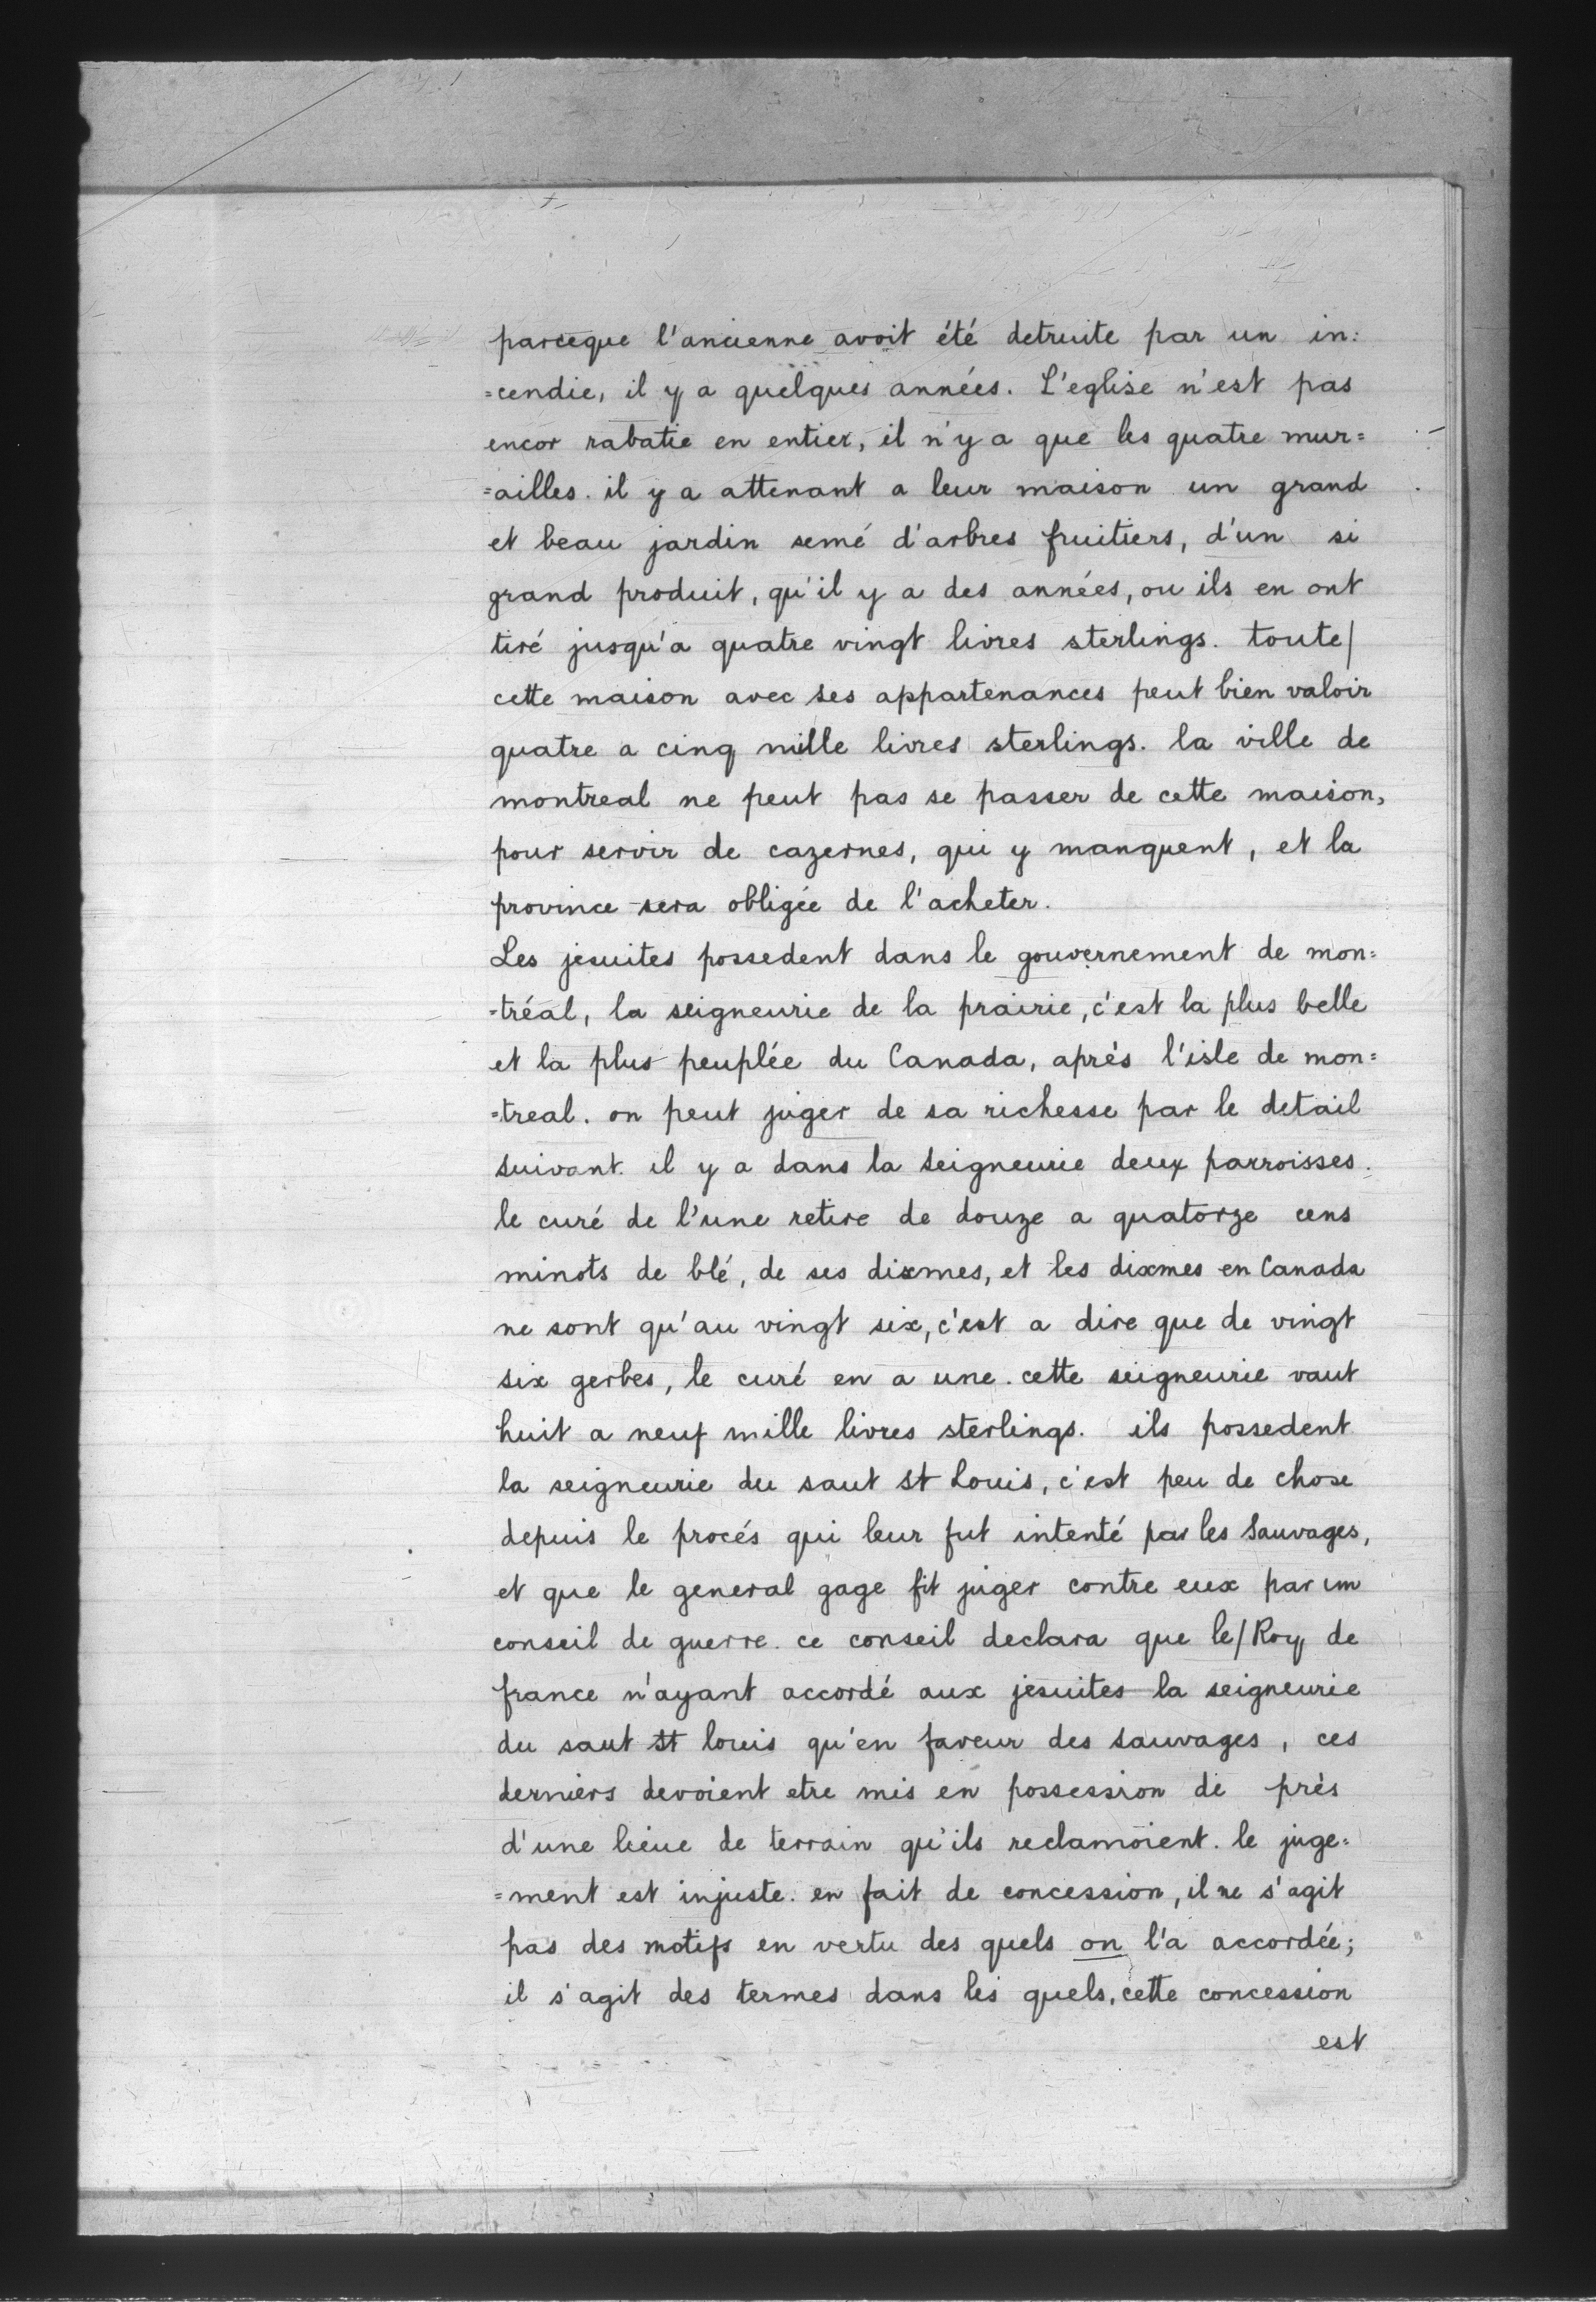 parceque l'ancienne avoit été detruite par un in:
=cendie, il y a quelques années. L'eglise n'est pas
encor rabatie en entier, il n'y a que les quatre mur=
=ailles. il y a attenant a leur maison un grand
et beau jardin semé d'arbres fruitiers, d'un si
grand produit, qu'il y a des années, ou ils en ont
tiré jusqu'a quatre vingt livres sterlings. toute/
cette maison avec ses appartenances peut bien valoir
quatre a cinq mille livres sterlings. la ville de
montreal ne peut pas se passer de cette maison,
pour servir de cazernes, qui y manquent, et la
province sera obligée de l'acheter.
Les jesuites possedent dans le gouvernement de mon=
=tréal, la seigneurie de la prairie, c'est la plus belle
et la plus peuplée du Canada, aprés l'isle de mon=
=treal. on peut juger de sa richesse par le detail
suivant. il y a dans la seigneurie deux parroisses.
le curé de l'une retire de douze a quatorze cens
minots de blé, de ses dixmes, et les dixmes en Canada
ne sont qu'au vingt six, c'est a dire que de vingt
six gerbes, le curé en a une. cette seigneurie vaut
huit a neuf mille livres sterlings. ils possedent
la seigneurie du saut St Louis, c'est peu de chose
depuis le procés qui leur fut intenté par les Sauvages,
et que le general gage fit juger contre eux par un
conseil de guerre. ce conseil declara que le/Roy de
france n'ayant accordé aux jesuites la seigneurie
du saut St louis qu'en faveur des sauvages, ces
derniers devoient etre mis en possession de près
d'une lieue de terrain qu'ils reclamoient. le juge=
=ment est injuste. en fait de concession, il ne s'agit
pas des motifs en vertu des quels on l'a accordée;
il s'agit des termes dans les quels, cette concession
est